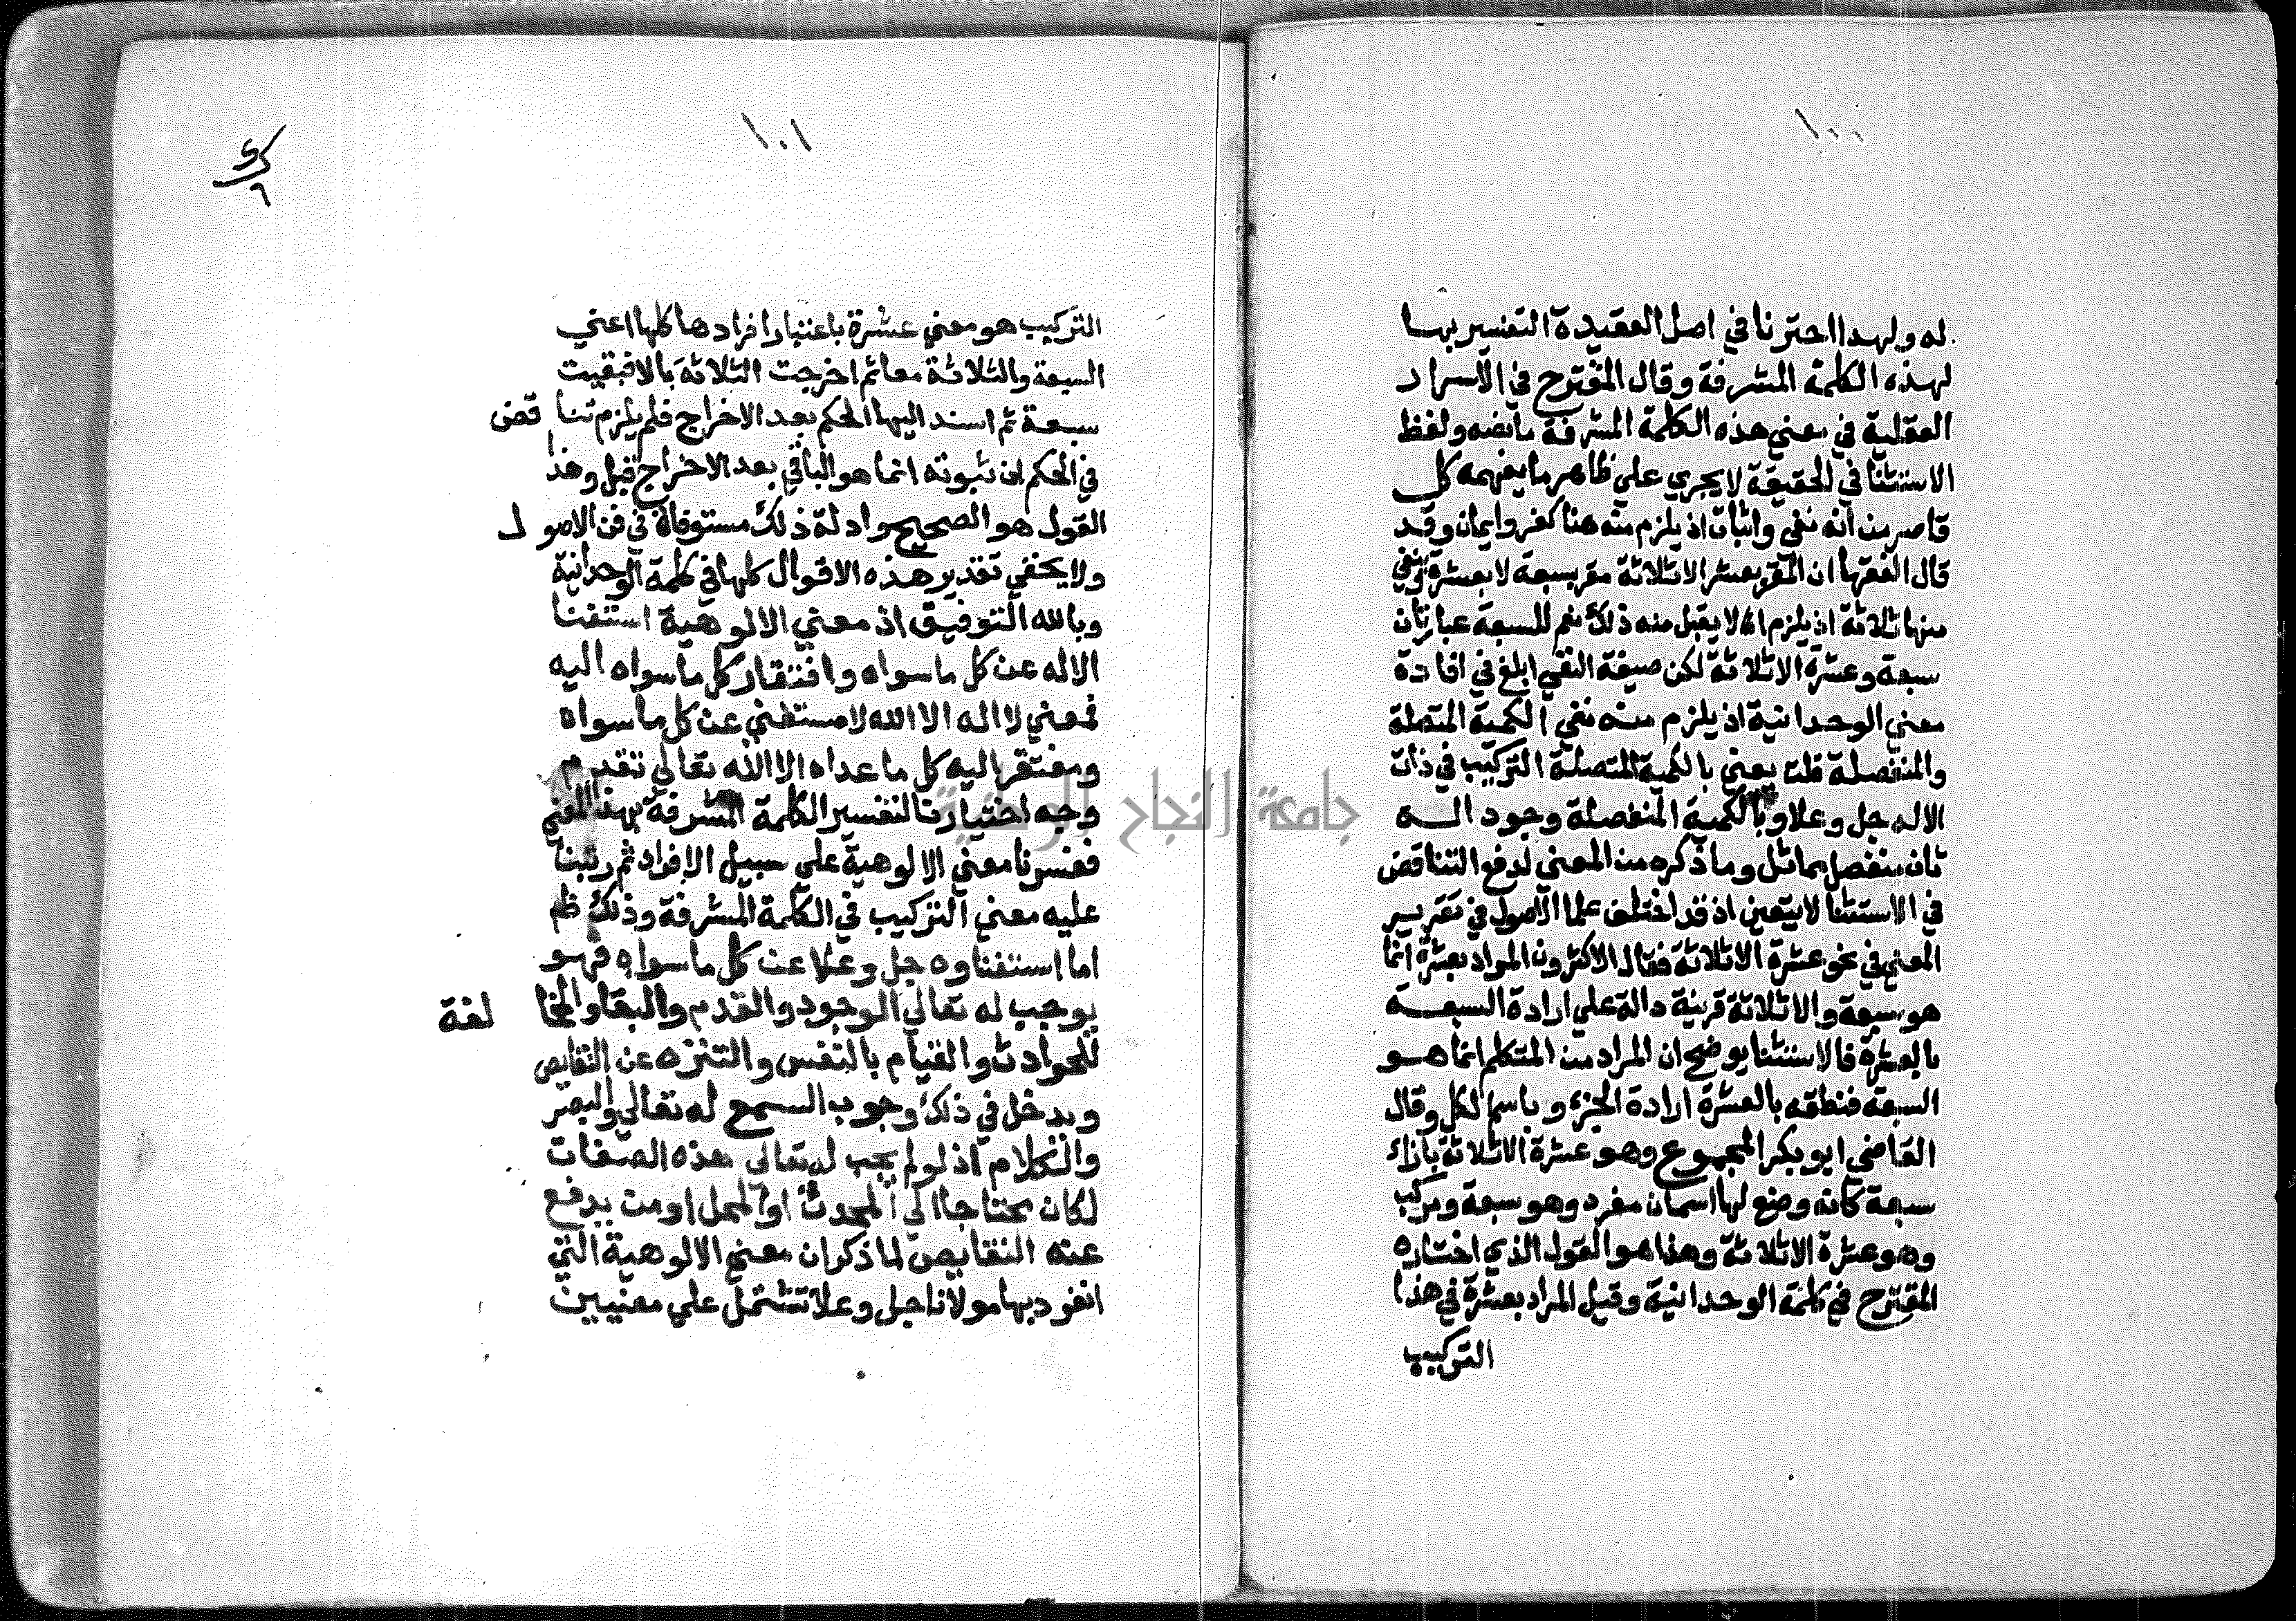 ١٠٠
له ولهذا اخترنا في اصل العقيدة التفسير بها
لهذه الكلمة المشرفة وقال المقترح في الاسرار
العقلية في معني هذه الكلمة المشرفة ما نصه ولفظ
الاستثنا في الحقيقة لا يجري علي ظاهر ما يفهمه كل
قاصر من انه نفي واثبات اذ يلزم منه هنا كفر وايمان وقد
قال الفقها ان المقر بعشر الا ثلاثة مقر بسبعة لا بعشرة ونفي
منها ثلاثة اذ يلزم انه لا يقبل منه ذلك نعم للسبعة عبارتان
سبعة وعشرة الا ثلاثة لكن صيغة النفي ابلغ في افادة
معني الوحدانية اذ يلزم منه نفي الكمية المتصلة
والمنفصلة قلت يعني بالكمية المتصلة التركيب في ذات
الاله جل وعلا وبالكمية المنفصلة وجود اله
ثان منفصل مماثل وما ذكره من المعني لدفع التناقض
في الاستثنا لا يتعين اذ قد اختلف علما الاصول في تقرير
المعني في نحو عشرة الا ثلاثة فقال الاكثرون المراد بعشرة انما
هو سبعة والا ثلاثة قرينة دالة علي ارادة السبعة
بالعشرة فالاستثنا يوضح ان المراد من المتكلم انما هو
السبعة فنطقه بالعشرة ارادة الجزء وباسم الكل وقال
القاضي ابو بكر المجموع وهو عشرة الا ثلاثة بازاء
سبعة كانه وضع لها اسمان مفرد وهو سبعة ومركب
وهو عشرة الا ثلاثة وهذا هو القول الذي اختاره
المقترح في كلمة الوحدانية وقيل المراد بعشرة في هذا
التركيب
١٠١
التركيب هو معني عشرة باعتبار افرادها كلها اعني
السبعة والثلاثة معا ثم اخرجت الثلاثة بالا فبقيت
سبعة ثم اسند اليها الحكم بعد الاخراج فلم يلزم تناقض
في الحكم لان ثبوته انما هو الباقي بعد الاخراج قيل وهذا
القول هو الصحيح وادلة ذلك مستوفاة في فن الاصول
ولا يخفي تقدير هذه الاقوال كلها في كلمة الوحدانية
وبالله التوفيق اذ معني الالوهية استغنا
الاله عن كل ما سواه وافتقار كل ما سواه اليه
فمعني لا اله الا الله لا مستغني عن كل ما سواه
ومفتقر اليه كل ما عداه الا الله تعالي تقدم
وجه اختيارنا لتفسير الكلمة المشرفة بهذا المعني
ففسرنا معني الالوهية علي سبيل الافراد ثم رتبنا
عليه معني التركيب في الكلمة المشرفة وذلك ظم
اما استغناوه جل وعلا عن كل ما سواه فهو
يوجب له تعالي الوجود والقدم والبقا والمخالفة
للحوادث والقيام بالنفس والتنزه عن النقايص
ويدخل في ذلك وجوب السمع له تعالي والبصر
والكلام اذ لو لم يجب له تعالي هذه الصفات
لكان محتاجا الي المحدث او المحل او من يدفع
عنه النقايص لما ذكر ان معني الالوهية التي
انفرد بها مولانا جل وعلا تشتمل علي معنيين
جامعة النجاح الوطنية